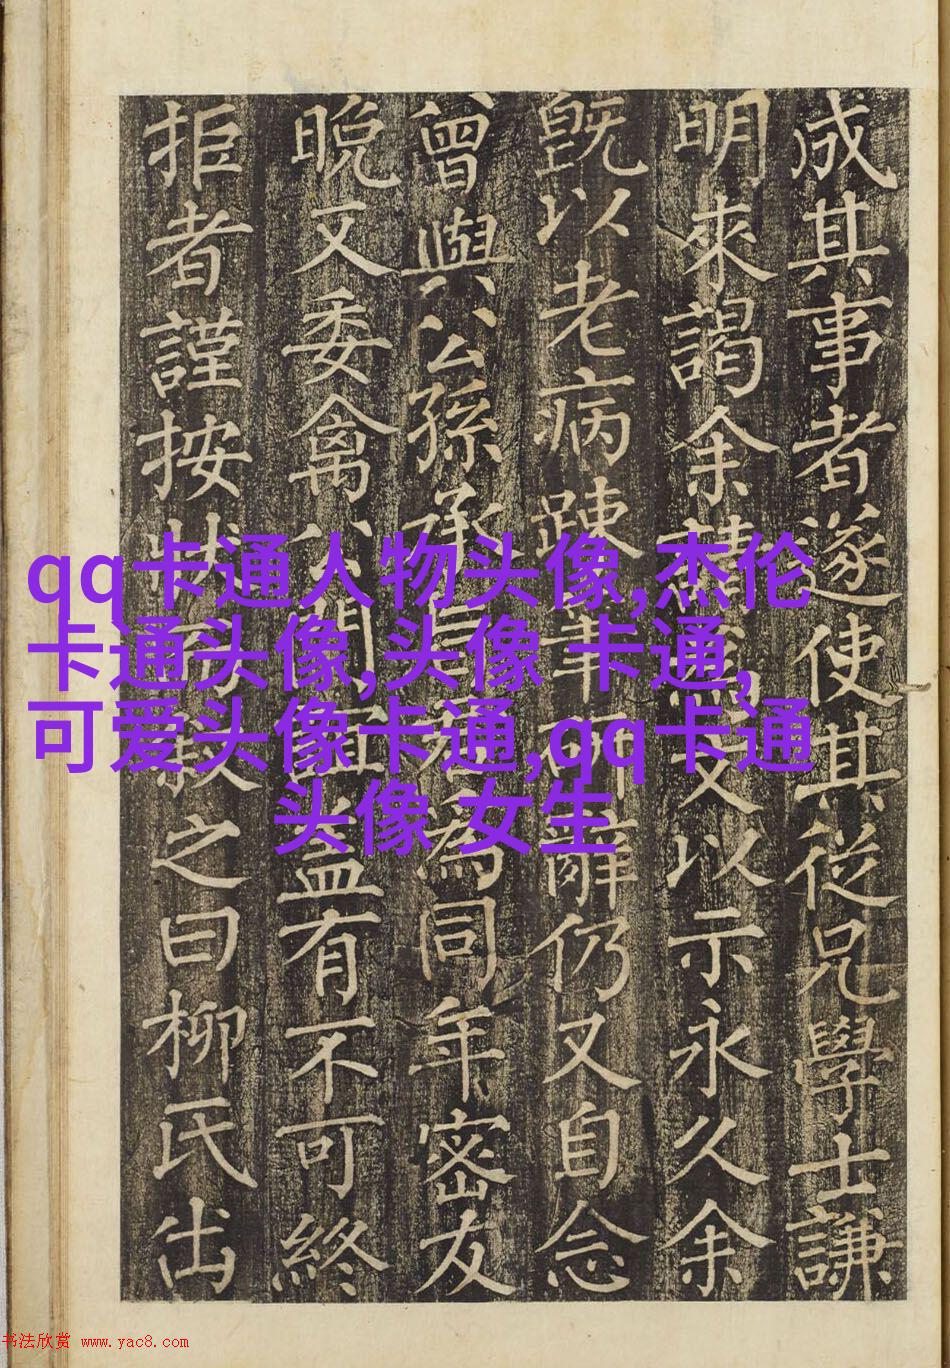 成其事者遂使其從兄學士謙
明來謁余文以示永久余
旣以老病踈辭仍又自念
曾與公孫承為同年密友
晚又委禽公門益有不可終
拒者謹按狀敘之曰柳氏出
qq卡通人物头像,杰伦
卡通头像,头像 卡通,
可爱头像卡通,qq卡通
头像 女生
书法欣赏 www.yac8.com